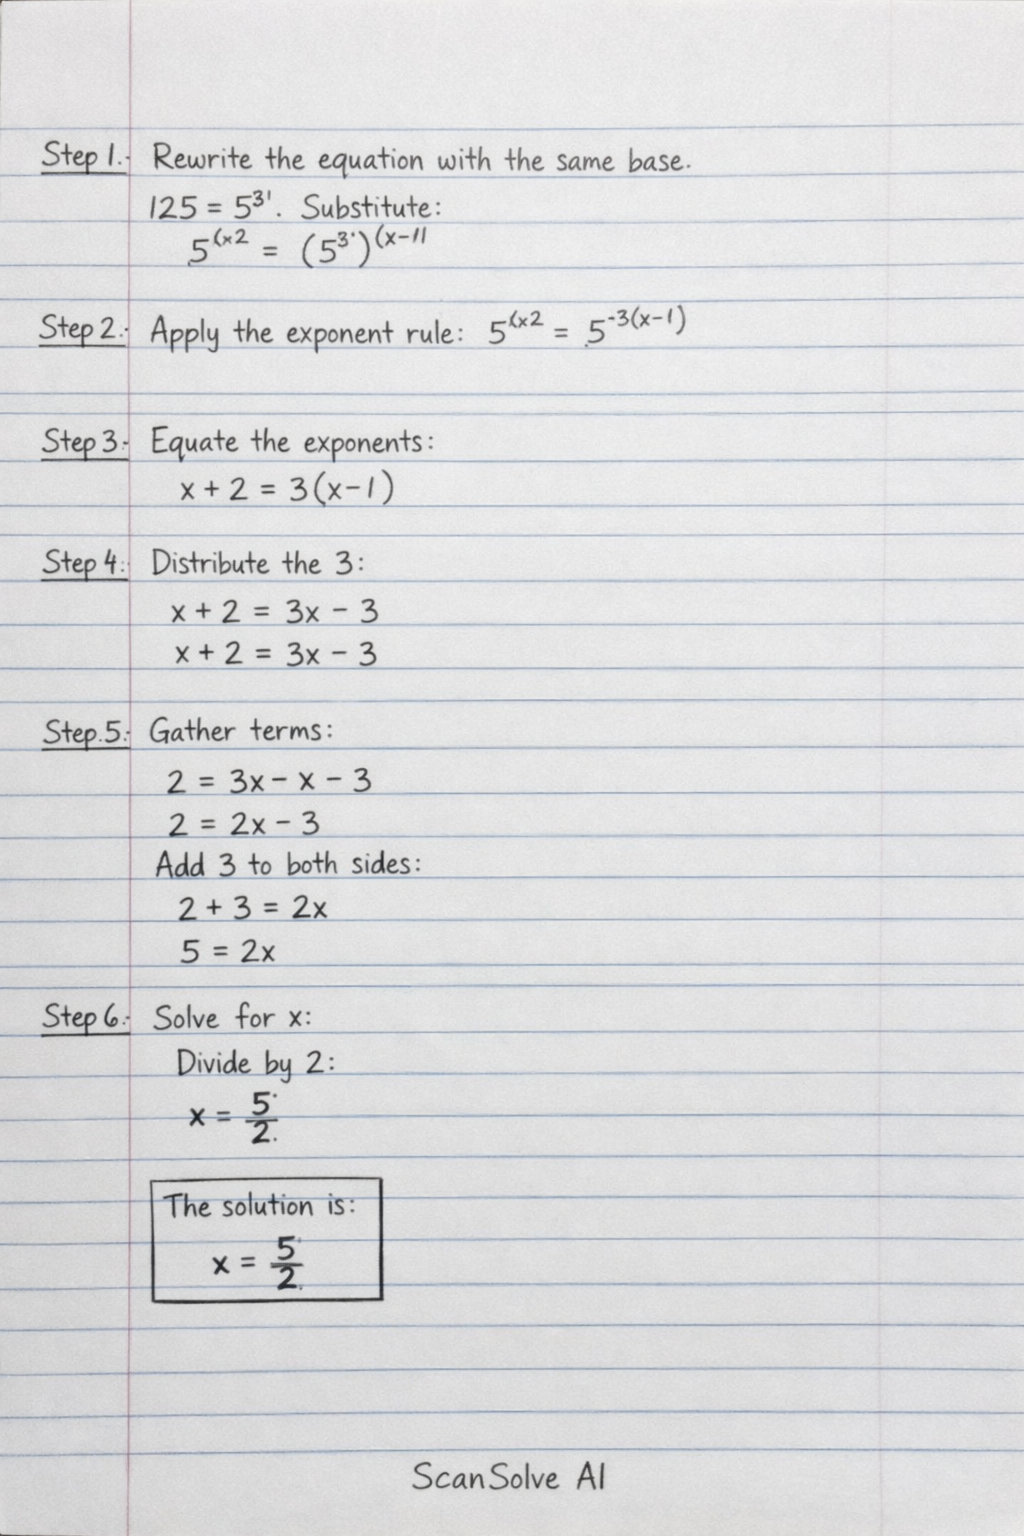 Step 1. Rewrite the equation with the same base.
125 = 5^3'. Substitute:
5^(x2 = (5^3·)^(x-11
Step 2: Apply the exponent rule: 5^(x2 = 5^-3(x-1)
Step 3: Equate the exponents:
x + 2 = 3(x-1)
Step 4: Distribute the 3:
x + 2 = 3x - 3
x + 2 = 3x - 3
Step.5: Gather terms:
2 = 3x - x - 3
2 = 2x - 3
Add 3 to both sides:
2 + 3 = 2x
5 = 2x
Step 6: Solve for x:
Divide by 2:
x = 5/2
The solution is:
x = 5/2
ScanSolve AI